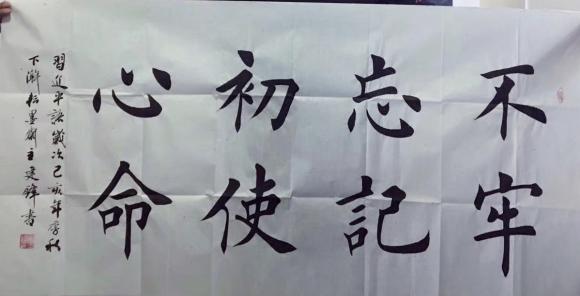 不忘初心
牢記使命
習進平 歲次己亥年季秋
下澣松墨齋主建鋒書